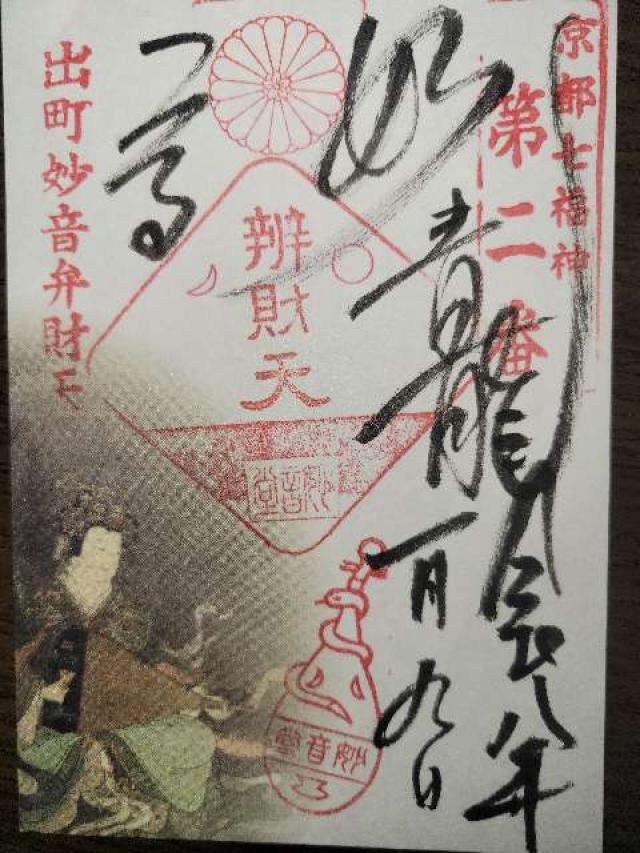 京都七福神
第二番
青龍
八年
一月九日
辨財天
妙音堂
妙音堂
出町妙音弁財天